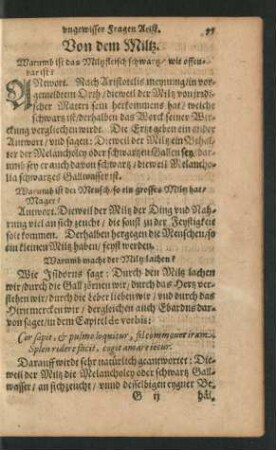 vngewisser Fragen Arist. 55
Von dem Miltz.
Warumb ist das Miltzfleisch schwartz / wie offen-
bar ist?
ANtwort. Nach Aristotelis meynung / in vor-
gemeldtem Orth / dieweil der Miltz von jrdi-
scher Materi sein herkommens hat / welche
schwartz ist / derhalben das Werck seiner Wir-
ckung verglichen wirdt. Die Ertzt geben ein ander
Antwort / vnd sagen: Dieweil der Miltz ein Behal-
ter der Melancholey oder schwartzen Gallen sey / dar-
umb sey er auch davon schwartz / dieweil Melancho-
lia schwartzes Gallwasser ist.
Warumb ist der Mensch / so ein grossen Miltz hat /
Mager?
Antwort. Dieweil der Miltz der Ding vnd Nah-
rung viel an sich zeucht / die sonst zu der Feystigkeit
solt kommen. Derhalben hergegen die Menschen / so
ein kleinen Miltz haben / feyst werden.
Warumb macht der Miltz lachen?
Wie Isidorus sagt: Durch den Miltz lachen
wir / durch die Gall zörnen wir / durch das Hertz ver-
stehen wir / durch die Leber lieben wir / vnd durch das
Hirn mercken wir / dergleichen auch Ebardus dar-
von saget / in dem Capitel de verbis:
Cor sapit, & pulmo loquitur, fel commouet iram,
Splen ridere facit, cogit amare iecur.
Darauff wirdt sehr natürlich geantwortet: Die-
weil der Miltz die Melancholey oder schwartz Gall-
wasser / an sich zeucht / vnnd desselbigen eygner Be-
G ij häl-